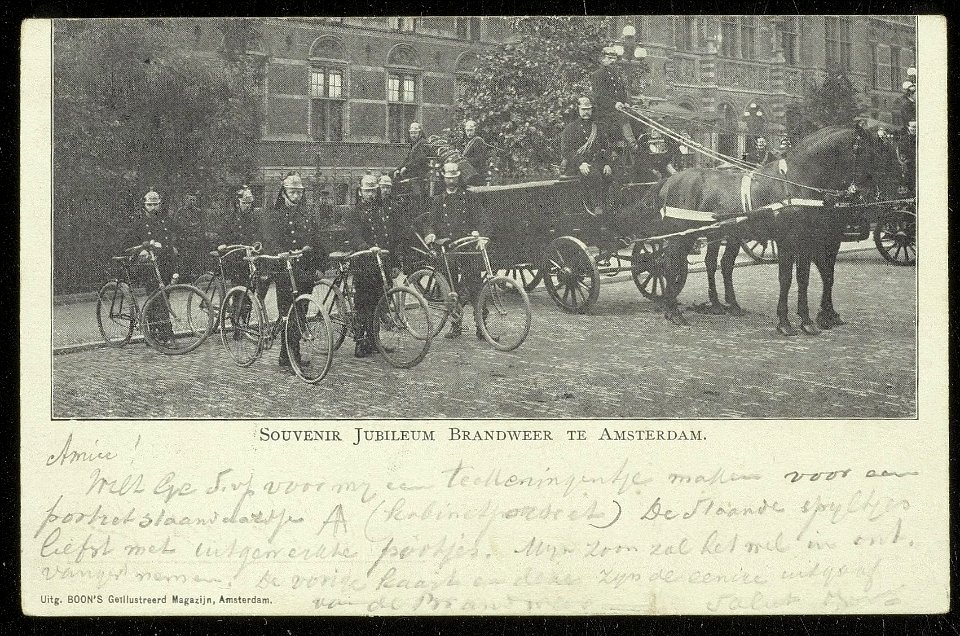 SOUVENIR JUBILEUM BRANDWEER TE AMSTERDAM.
Amice!
Wilt Ge voor my een teekeningentje maken voor een
portretstandaardje (Kabinetportret) De staande spyltjes
liefst met uitgewerkte pootjes. Myn zoon zal het wel in ont.
vangst nemen. De vorige kaart en deze zyn de eenige uitgaaf
van de Brandweer Salut
Uitg. BOON'S Geïllustreerd Magazijn, Amsterdam.